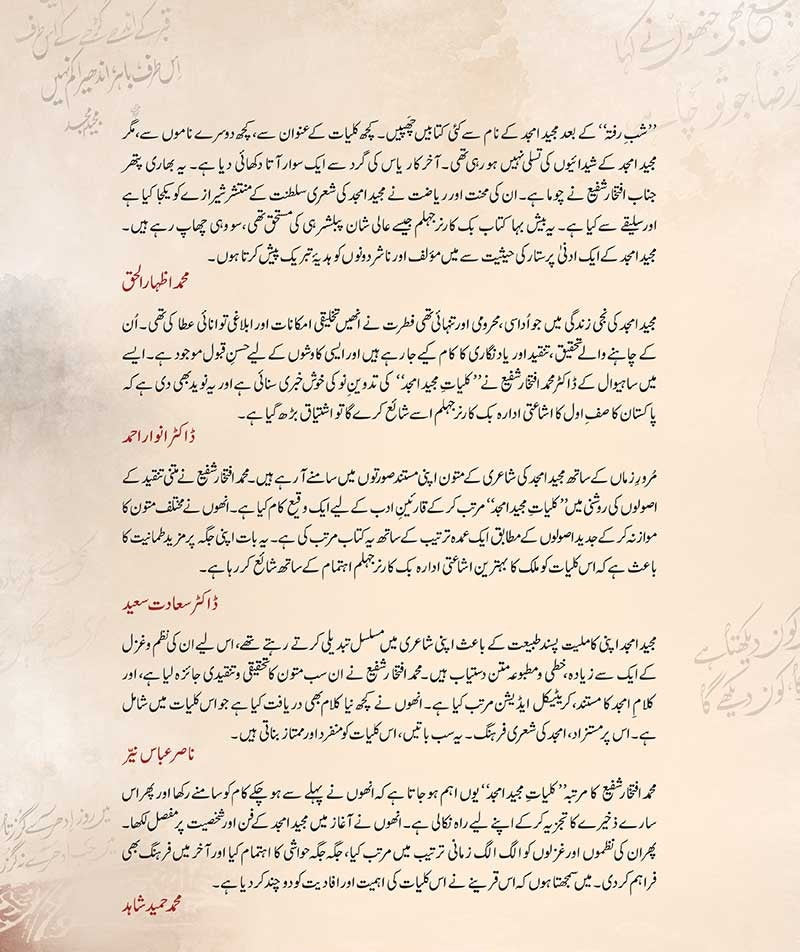 قبر کے اندھے گڑھے کے اس طرف
اس طرف باہر اندھیرا کم نہیں
مجید امجد
بھی جنھوں نے کہا
جو تُو چاہے
"شبِ رفتہ" کے بعد مجید امجد کے نام سے کئی کتابیں چھپیں۔ کچھ کلیات کے عنوان سے، کچھ دوسرے ناموں سے، مگر
مجید امجد کے شیدائیوں کی تسلی نہیں ہو رہی تھی۔ آخر کار یاس کی گرد سے ایک سوار آتا دکھائی دیا ہے۔ یہ بھاری پتھر
جناب افتخار شفیع نے چوما ہے۔ ان کی محنت اور ریاضت نے مجید امجد کی شعری سلطنت کے منتشر شیرازے کو یکجا کیا ہے
اور سلیقے سے کیا ہے۔ یہ بیش بہا کتاب بک کارنر جہلم جیسے عالی شان پبلشر ہی کی مستحق تھی، سو وہی چھاپ رہے ہیں۔
مجید امجد کے ایک ادنیٰ پرستار کی حیثیت سے میں مؤلف اور ناشر دونوں کو ہدیۂ تبریک پیش کرتا ہوں۔
محمد اظہار الحق
مجید امجد کی نجی زندگی میں جو اُداسی، محرومی اور تنہائی تھی فطرت نے انھیں تخلیقی امکانات اور ابلاغی توانائی عطا کی تھی۔ اُن
کے چاہنے والے تحقیق، تنقید اور یاد نگاری کا کام کیے جا رہے ہیں اور ایسی کاوشوں کے لیے حسنِ قبول موجود ہے۔ ایسے
میں ساہیوال کے ڈاکٹر محمد افتخار شفیع نے "کلیاتِ مجید امجد" کی تدوینِ نو کی خوش خبری سنائی ہے اور یہ نوید بھی دی ہے کہ
پاکستان کا صفِ اول کا اشاعتی ادارہ بک کارنر جہلم اسے شائع کرے گا تو اشتیاق بڑھ گیا ہے۔
ڈاکٹر انوار احمد
مُرورِ زماں کے ساتھ مجید امجد کی شاعری کے متون اپنی مستند صورتوں میں سامنے آ رہے ہیں۔ محمد افتخار شفیع نے متنی تنقید کے
اصولوں کی روشنی میں "کلیاتِ مجید امجد" مرتب کر کے قارئینِ ادب کے لیے ایک وقیع کام کیا ہے۔ انھوں نے مختلف متون کا
موازنہ کر کے جدید اصولوں کے مطابق ایک عمدہ ترتیب کے ساتھ یہ کتاب مرتب کی ہے۔ یہ بات اپنی جگہ پر مزید طمانیت کا
باعث ہے کہ اس کلیات کو ملک کا بہترین اشاعتی ادارہ بک کارنر جہلم اہتمام کے ساتھ شائع کر رہا ہے۔
ڈاکٹر سعادت سعید
مجید امجد اپنی کاملیت پسند طبیعت کے باعث اپنی شاعری میں مسلسل تبدیلی کرتے رہتے تھے، اس لیے ان کی نظم و غزل
کے ایک سے زیادہ، خطی و مطبوعہ متن دستیاب ہیں۔ محمد افتخار شفیع نے ان سب متون کا تحقیقی و تنقیدی جائزہ لیا ہے، اور
کلامِ امجد کا مستند، کریٹیکل ایڈیشن مرتب کیا ہے۔ انھوں نے کچھ نیا کلام بھی دریافت کیا ہے جو اس کلیات میں شامل
ہے۔ اس پر مستزاد، امجد کی شعری فرہنگ۔ یہ سب باتیں، اس کلیات کو منفرد اور ممتاز بناتی ہیں۔
ناصر عباس نیّر
محمد افتخار شفیع کا مرتبہ "کلیاتِ مجید امجد" یوں اہم ہو جاتا ہے کہ انھوں نے پہلے سے ہو چکے کام کو سامنے رکھا اور پھر اس
سارے ذخیرے کا تجزیہ کر کے اپنے لیے راہ نکالی ہے۔ انھوں نے آغاز میں مجید امجد کے فن اور شخصیت پر مفصل لکھا۔
پھر ان کی نظموں اور غزلوں کو الگ الگ زمانی ترتیب میں مرتب کیا، جگہ جگہ حواشی کا اہتمام کیا اور آخر میں فرہنگ بھی
فراہم کر دی۔ میں سمجھتا ہوں کہ اس قرینے نے اس کلیات کی اہمیت اور افادیت کو دو چند کر دیا ہے۔
محمد حمید شاہد
کون دیکھتا ہے
کون دیکھے گا
میں روز ادھر سے گزرتا